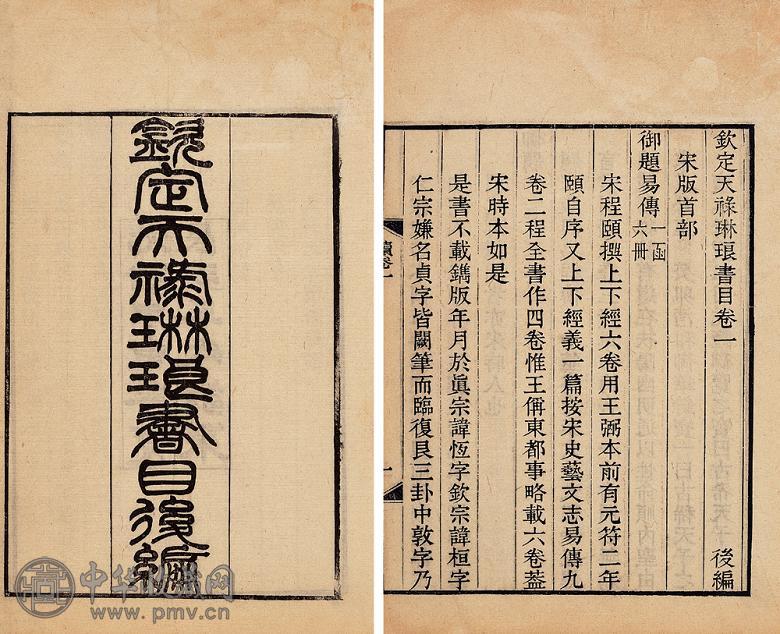 欽定天祿琳琅書目後編
欽定天祿琳琅書目卷一 後編
宋版首部
御題易傳一函六冊
宋程頤撰上下經六卷用王弼本前有元符二年
頤自序又上下經義一篇按宋史藝文志易傳九
卷二程全書作四卷惟王偁東都事略載六卷葢
宋時本如是
是書不載鐫版年月於眞宗諱恆字欽宗諱桓字
仁宗嫌名貞字皆闕筆而臨復艮三卦中敦字乃
續卷一
一
中华收藏网
www.pmv.cn